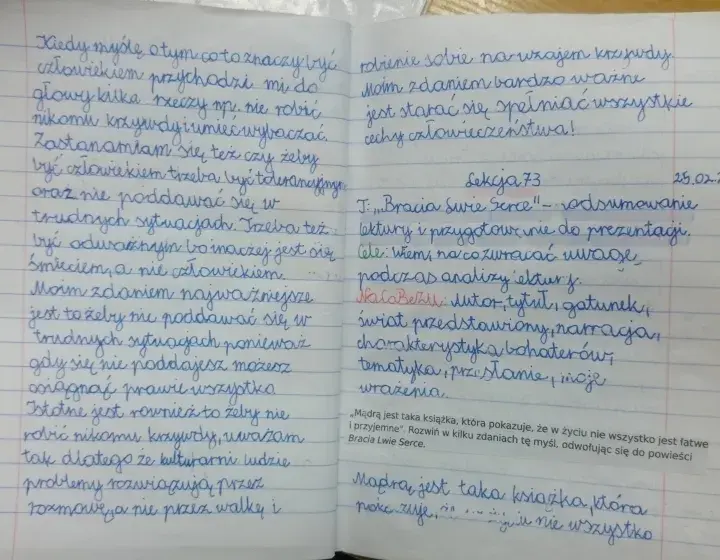 Kiedy myślę o tym co to znaczy być
człowiekiem przychodzi mi do
głowy kilka rzeczy np. nie robić
nikomu krzywdy i umieć wybaczać.
Zastanamiam się też czy żeby
być człowiekiem trzeba być tolerancyjnym
oraz nie poddawać się w
trudnych sytuacjach. Trzeba też
być odważnym bo inaczej jest się
śmieciem, a nie człowiekiem.
Moim zdaniem najważniejsze
jest to żeby nie poddawać się w
trudnych sytuacjach ponieważ
gdy się nie poddajesz możesz
osiągnąć prawie wszystko
Istotne jest również to żeby nie
robić nikomu krzywdy, uważam
tak dlatego że kulturarni ludzie
problemy rozwiązują przez
rozmowę, a nie przez walkę i
robienie sobie na wzajem krzywdy.
Moim zdaniem bardzo ważne
jest starać się spełniać wszystkie
cechy człowieczeństwa!
Lekcja 73
25.02.
T: „Bracia Lwie Serce" – podsumowanie
lektury i przygotowanie do prezentacji.
Cele: Wiem, na co zwracać uwagę
podczas analizy lektury.
NaCoBeZu: Autor, tytuł, gatunek,
świat przedstawiony, narracja,
charakterystyka bohaterów,
tematyka, przesłanie, moje
wrażenia.
„Mądrą jest taka książka, która pokazuje, że w życiu nie wszystko jest łatwe
i przyjemne". Rozwiń w kilku zdaniach tę myśl, odwołując się do powieści
Bracia Lwie Serce.
Mądrą jest taka książka, która
nie wszystko